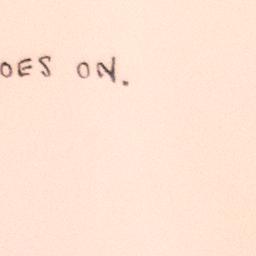 OES ON.